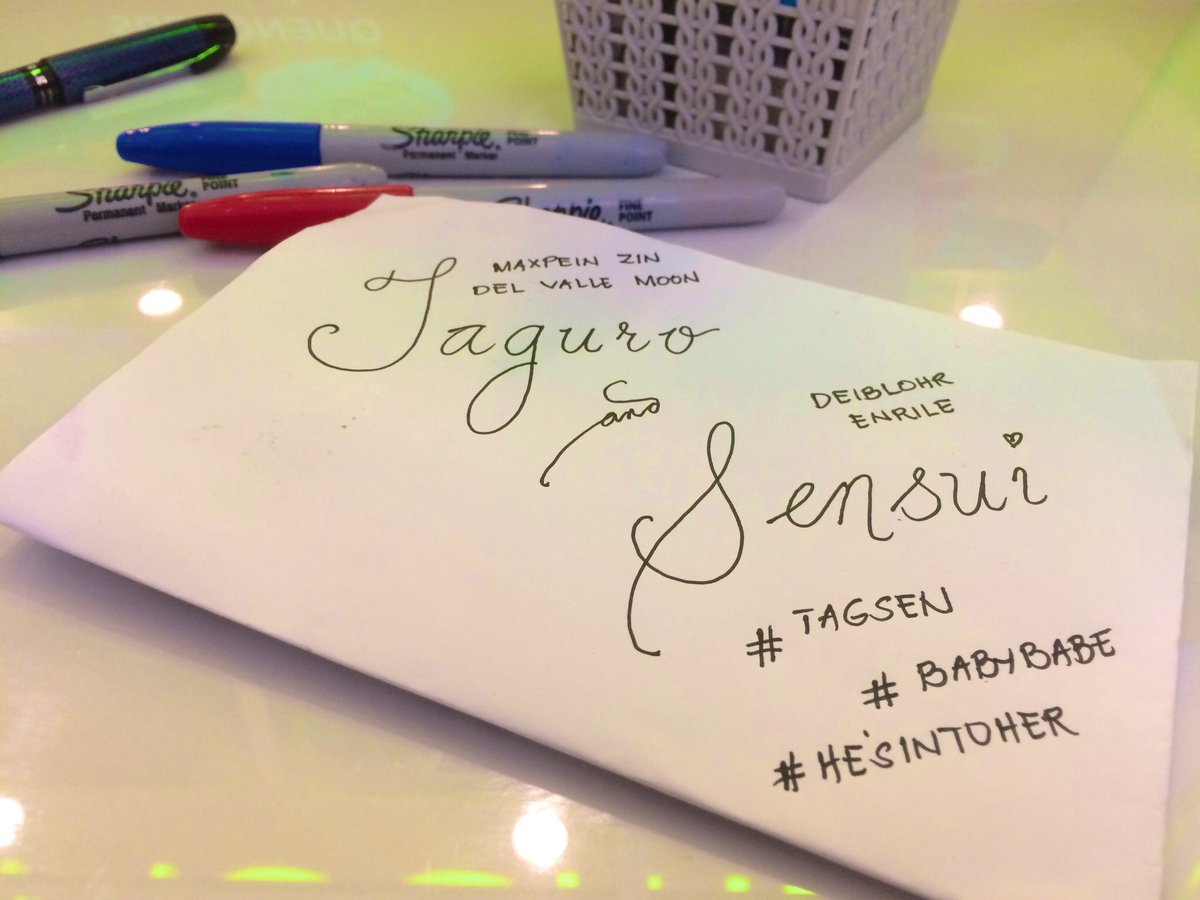 Sharpie® FINE POINT
Permanent Marker
Sharpie® FINE POINT
Permanent Marker
Sharpie FINE POINT
MAXPEIN ZIN
DEL VALLE MOON
Taguro
and
DEIBLOHR
ENRILE
Sensui
# TAGSEN
# BABYBABE
#HE'SINTOHER